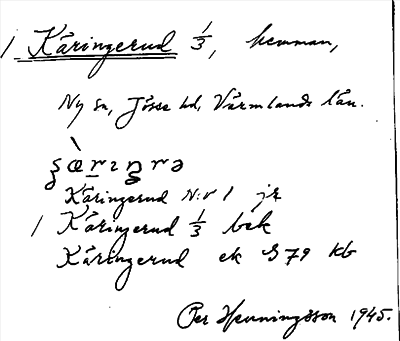 1 Käringerud 1/3, hemman,
Ny sn, Jösse hd, Värmlands län.
Käringerud N:r 1 jr
1 Käringerud 1/3 bek
Käringerud ek S 79 kb
Per Henningsson 1945.